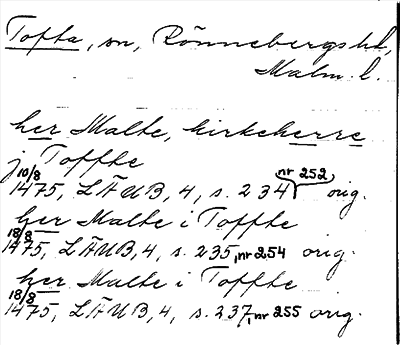 Tofta, sn, Rönnebergs hd,
Malm. l.
her Malte, kirkeherre
j Toffte
10/8 1475, LÄUB, 4, s. 234, nr 252, orig.
her Malte i Toffte
18/8 1475, LÄUB, 4, s. 235, nr 254 orig.
her Malte i Toffte
18/8 1475, LÄUB, 4, s. 237, nr 255 orig.